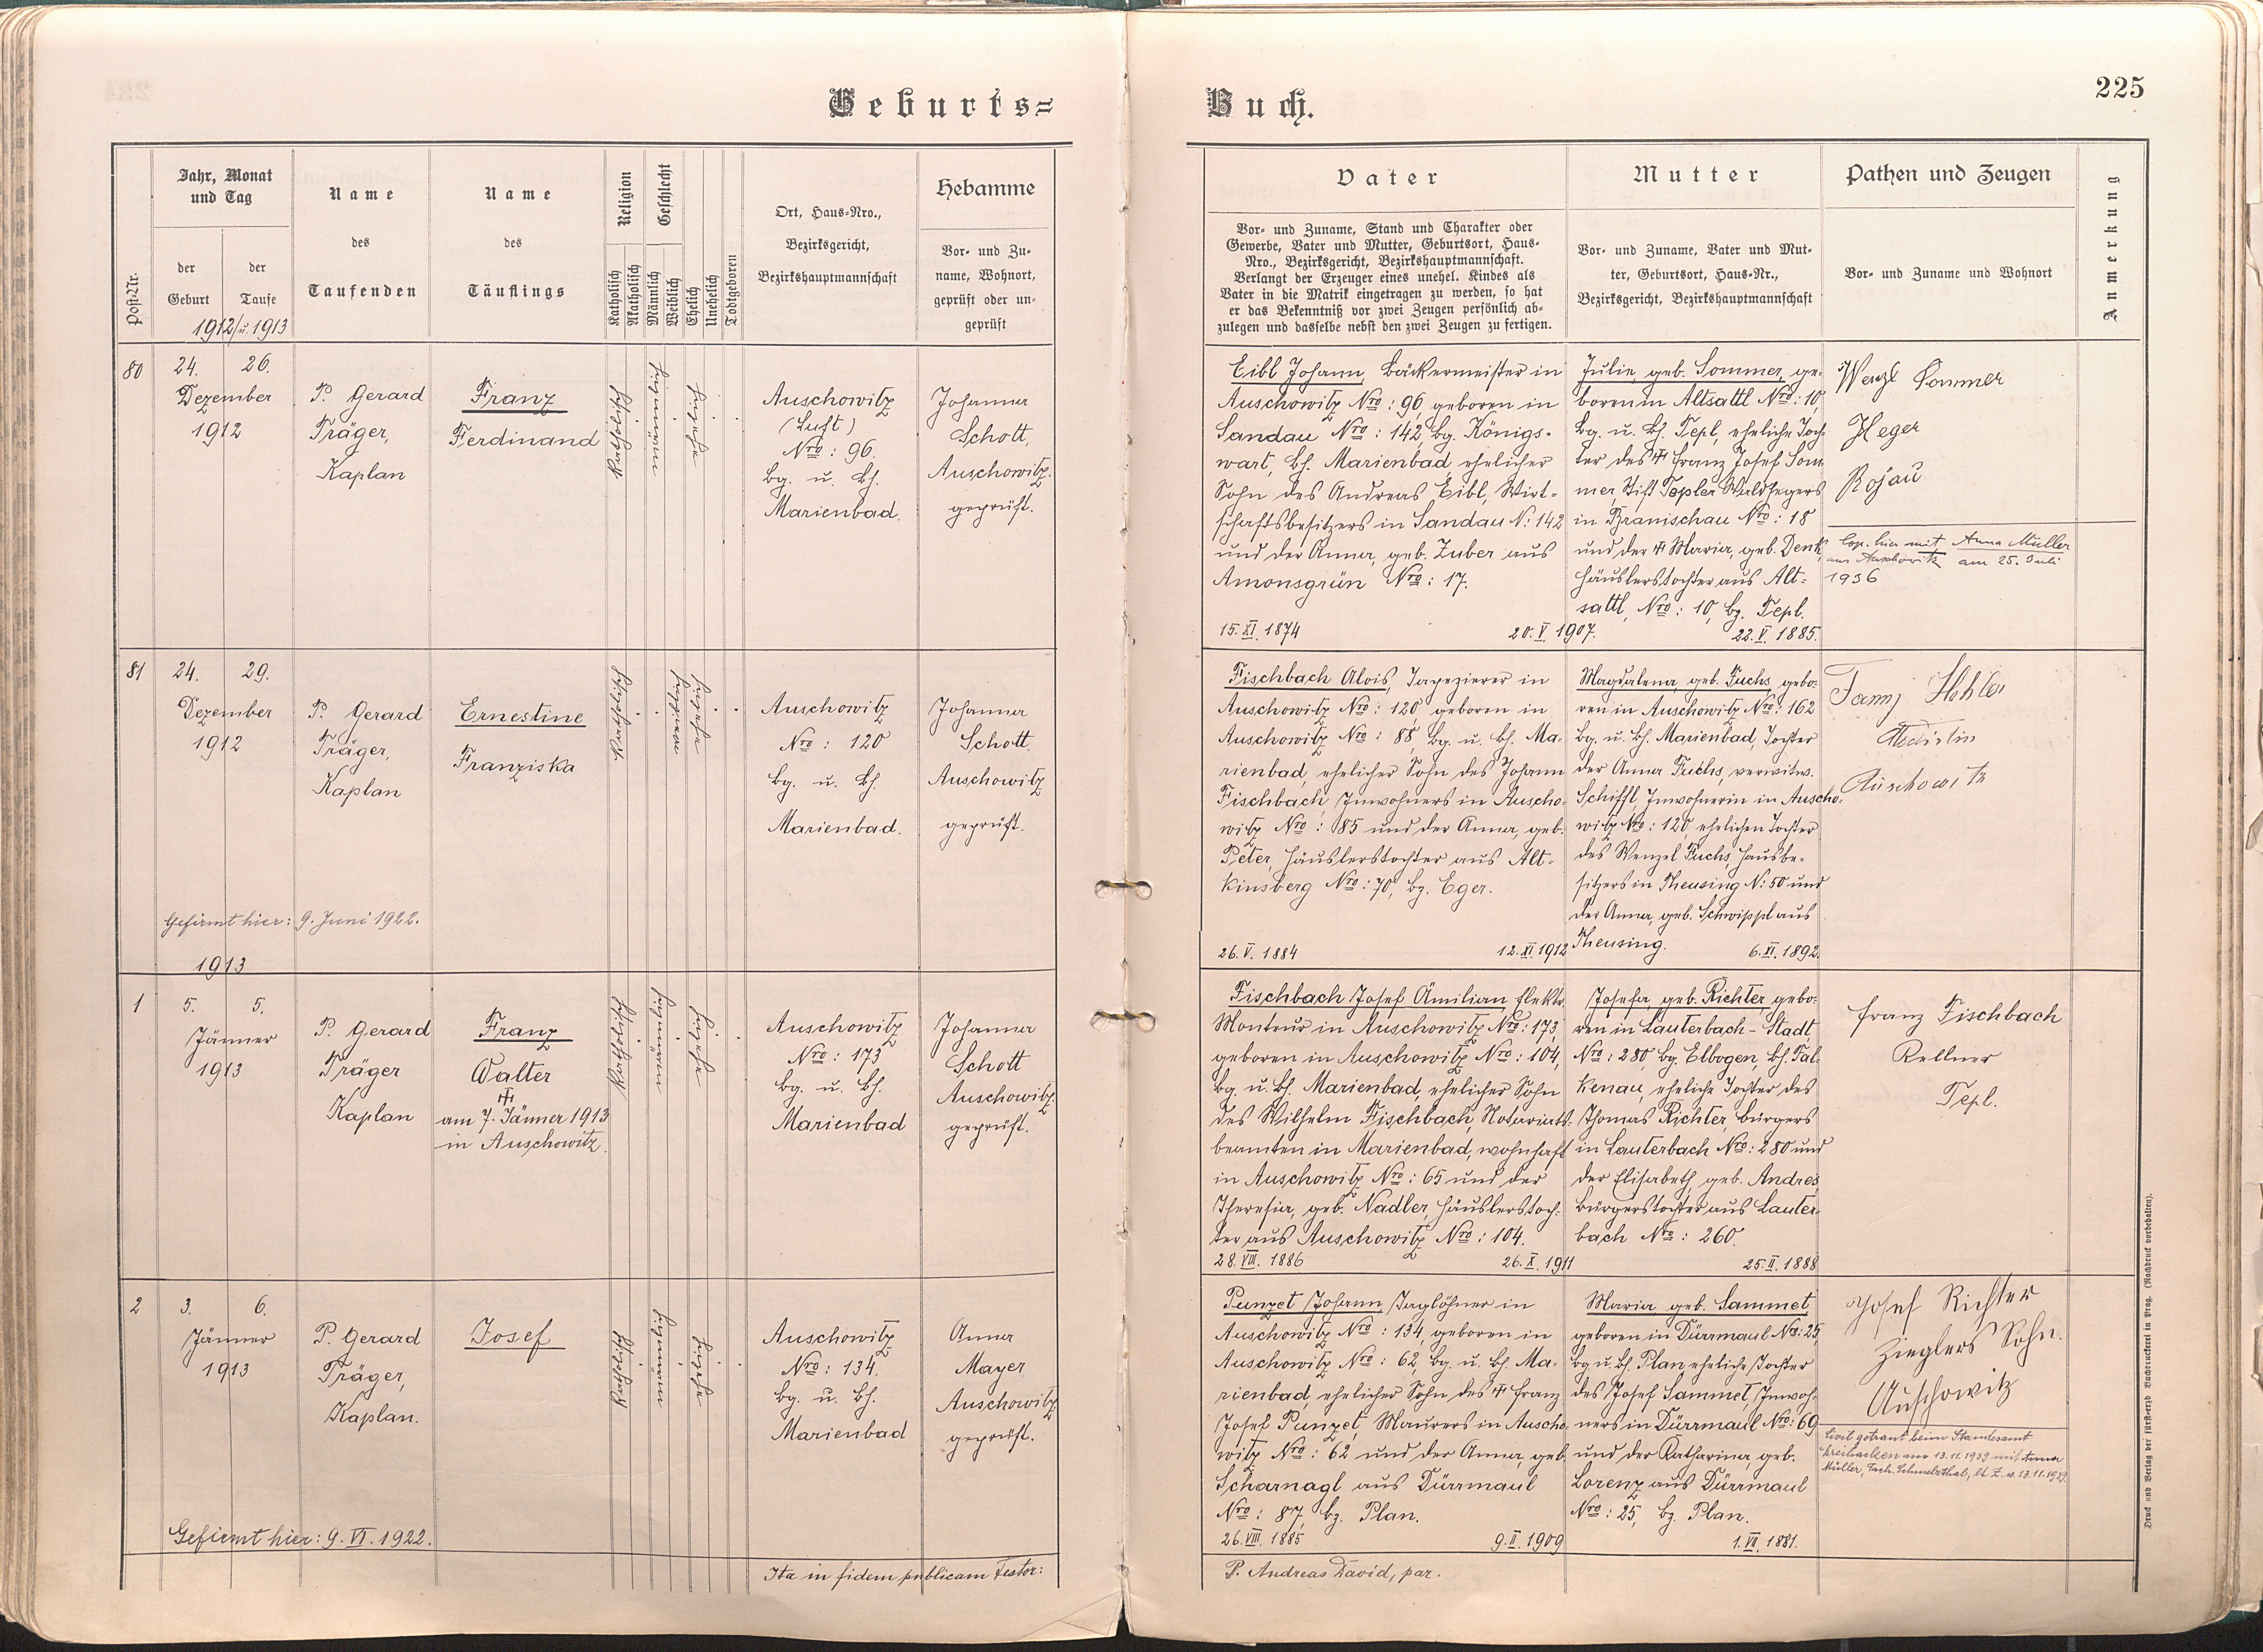 Geburts=
Buch.
225
Post-Nr.
Jahr, Monat
und Tag
der
Geburt
der
Taufe
1912/u. 1913
Name
des
Taufenden
Name
des
Täuflings
Religion
Katholisch
Akatholisch
Geschlecht
Männlich
Weiblich
Ehelich
Unehelich
Todtgeboren
Ort, Haus-Nro.,
Bezirksgericht,
Bezirkshauptmannschaft
Hebamme
Vor- und Zu-
name, Wohnort,
geprüft oder un-
geprüft
Vater
Vor- und Zuname, Stand und Charakter oder
Gewerbe, Vater und Mutter, Geburtsort, Haus-
Nro., Bezirksgericht, Bezirkshauptmannschaft.
Verlangt der Erzeuger eines unehel. Kindes als
Vater in die Matrik eingetragen zu werden, so hat
er das Bekenntniß vor zwei Zeugen persönlich ab-
zulegen und dasselbe nebst den zwei Zeugen zu fertigen.
Mutter
Vor- und Zuname, Vater und Mut-
ter, Geburtsort, Haus-Nr.,
Bezirksgericht, Bezirkshauptmannschaft
Pathen und Zeugen
Vor- und Zuname und Wohnort
Anmerkung
80
24.
Dezember
1912
26.
P. Gerard
Träger,
Kaplan
Franz
Ferdinand
Katholisch
Auschowitz
(Luft)
Nro: 96.
bg. u. bh.
Marienbad.
Johanna
Schott,
Auschowitz.
geprüft.
Eibl Johann, Bäckermeister in
Auschowitz Nro: 96, geboren in
Sandau Nro: 142, bg. Königs-
wart, bh. Marienbad, ehelicher
Sohn des Andreas Eibl, Wirt-
schaftsbesitzers in Sandau N: 142
und der Anna, geb. Zuber aus
Amonsgrün Nro: 17.
15. XI. 1874
20. V. 1907.
Julie, geb. Sommer, ge-
boren in Altsattl Nro: 10,
bg. u. bh. Tepl, eheliche Toch-
ter des ☩ Franz Josef Som-
mer, Stift Tepler Waldhegers
in Branischau Nro: 18
und der ☩ Maria, geb. Denk,
Häuslerstochter aus Alt-
sattl, Nro: 10, bg. Tepl.
22. V. 1885.
Wenzl Sommer
Heger
Rojau
Cop. hier mit Anna Müller
aus Auschowitz am 25. Juli
1936
81
24.
Dezember
1912
29.
P. Gerard
Träger,
Kaplan
Ernestine
Franziska
Katholisch
Auschowitz
Nro: 120
bg. u. bh.
Marienbad.
Johanna
Schott.
Auschowitz
geprüft.
Gefirmt hier: 9. Juni 1922.
Fischbach Alois, Tapezierer in
Auschowitz Nro: 120, geboren in
Auschowitz Nro: 88, bg. u. bh. Ma-
rienbad, ehelicher Sohn des Johann
Fischbach, Inwohners in Auscho-
witz Nro: 85 und der Anna, geb.
Peter, Häuslerstochter aus Alt-
kinsberg Nro: 70, bg. Eger.
26. V. 1884
12. XI. 1912
Magdalena, geb. Fuchs, gebo-
ren in Auschowitz Nro: 162
bg. u. bh. Marienbad, Tochter
der Anna Fuchs, verwitw.
Schiffl, Inwohnerin in Auscho-
witz Nro: 120, ehelichen Tochter
des Wenzel Fuchs, Hausbe-
sitzers in Theusing N: 50 und
der Anna, geb. Schwippl aus
Theusing.
6. XI. 1892.
Auschowitz
1913
1
5.
Jänner
1913
5.
P. Gerard
Träger
Kaplan
Franz
Walter
☩
am 7. Jänner 1913
in Auschowitz.
Katholisch
Auschowitz
Nro: 173
bg. u. bh.
Marienbad
Johanna
Schott
Auschowitz.
geprüft.
Fischbach Josef Ämilian, Elektr.
Monteur in Auschowitz Nro: 173,
geboren in Auschowitz Nro: 104,
bg. u. bh. Marienbad, ehelicher Sohn
des Wilhelm Fischbach, Notariats-
beamten in Marienbad, wohnhaft
in Auschowitz Nro: 65 und der
Theresia, geb. Nadler, Häuslerstoch-
ter aus Auschowitz Nro: 104.
28. VIII. 1886
26. X. 1911
Josefa, geb. Richter, gebo-
ren in Lauterbach-Stadt,
Nro: 280, bg. Elbogen, bh. Fal-
kenau, eheliche Tochter des
Thomas Richter, Bürgers
in Lauterbach Nro: 280 und
der Elisabeth, geb. Andres
Bürgerstochter aus Lauter-
bach Nro: 260.
25. II. 1888
Franz Fischbach
Kellner
Tepl.
2
3.
Jänner
1913
6.
P. Gerard
Träger,
Kaplan.
Josef
Katholisch
Auschowitz
Nro: 134.
bg. u. bh.
Marienbad
Anna
Mayer
Auschowitz
geprüft.
Gefirmt hier: 9. VI. 1922.
Punzet Johann, Taglöhner in
Auschowitz Nro: 134, geboren in
Auschowitz Nro: 62, bg. u. bh. Ma-
rienbad, ehelicher Sohn des ☩ Franz
Josef Punzet, Maurers in Auscho-
witz Nro: 62 und der Anna, geb.
Scharnagl aus Dürrmaul
Nro: 87, bg. Plan.
26. VIII. 1885
9. II. 1909
Maria, geb. Sammet,
geboren in Dürrmaul Nro: 25,
bg. u. bh. Plan, eheliche Tochter
des Josef Sammet, Inwoh-
ners in Dürrmaul Nro: 69
und der Katharina, geb.
Lorenz aus Dürrmaul
Nro: 25, bg. Plan.
1. VII. 1881.
Josef Richter
Zieglers Sohn.
Auschowitz
Civil getraut beim Standesamt
am 13.11.1939 mit Anna
Müller,
Ita in fidem publicam testor:
P. Andreas David, par.
Druck und Verlag der fürst-erzb. Buchdruckerei in Prag. (Nachdruck vorbehalten).